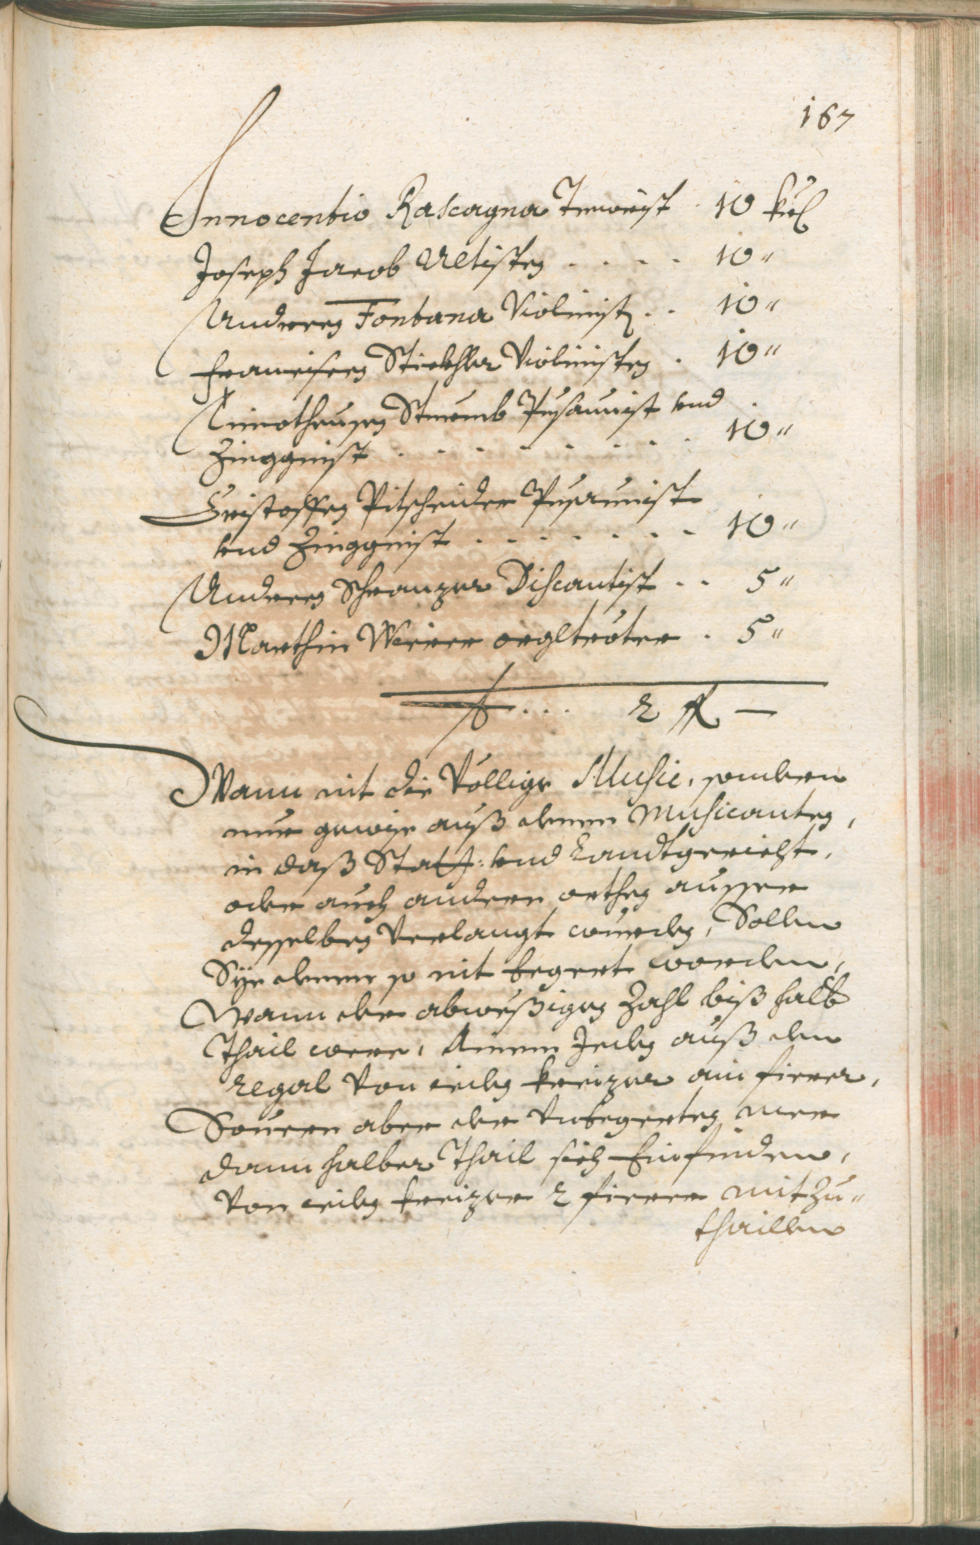 167
Innocentio Rascagna Tenorist . 10 kr
Joseph Jacob Altisten . . . . 10 "
Andreen Fontana Violinist . . 10 "
Francisen Violinisten . 10 "
Timotheusen Stumb Pusaunist vnd
Zinggnist . . . . . . . 10 "
Cristoffen Pitscheider Pusaunist
vnd Zinggnist . . . . . . . 10 "
Andreen Schranzer Discantist . . 5 "
Marthin orgltröter . 5 "
. . . 2 fl —
Wann nit die völlige Music, sondern
nur gewise auß denen Musicanten,
in daß Statt: vnd Landtgericht,
oder auch andern orthen ausser
desselben verlangt wurden, Sollen
Sye denen so nit begert worden,
Wann der abweßigen Zahl biß halb
Thail were, Ainem Jeden auß dem
regal von ieden kreizer ain fierer,
Souern aber der vnbegerten mer
dann halber Thail sich Einfinden,
von ieden kreizer 2 fierer mitzu"
thaillen